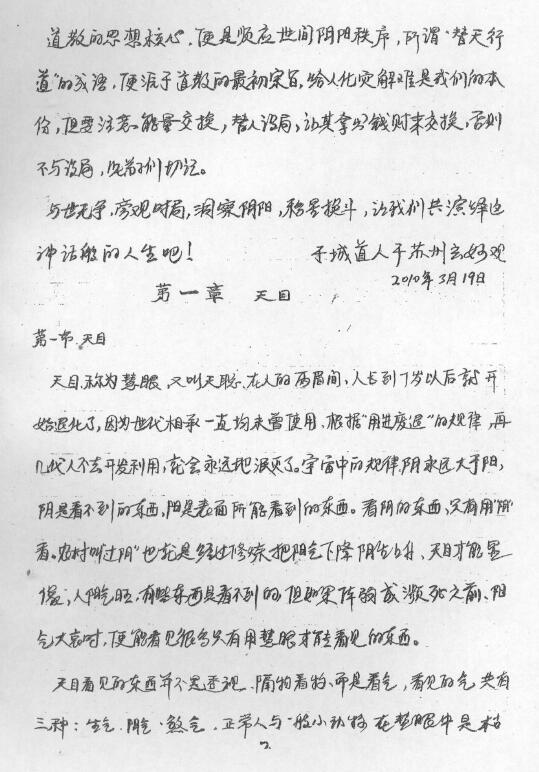 道教的思想核心,便是顺应世间阴阳秩序,所谓“替天行
道”的成语,便源于道教的最初宗旨,给人化灾解难是我们的本
份,但要注意能量交换,替人设局,让其拿出钱财来交换,否则
不与设局,见弟子们切记。
与世无争,旁观时局,洞察阴阳,移星换斗,让我们共演绎这
神话般的人生吧!
子城道人于苏州玄妙观
2010年3月19日
第一章 天目
第一节.天目
天目.称为慧眼,又叫天聪.在人的两眉间,人长到7岁以后就开
始退化了,因为世代相承一直均未曾使用、根据“用进废退”的规律,再
几代人不去开发利用,就会永远地泯灭了。宇宙中的规律,阴永远大于阳,
阴是看不到的东西,阳是表面所能看到的东西。看阴的东西,只有用“阴”
看。农村叫“过阴”也就是经过修炼.把阳气下降阴气上升、天目才能显
像,人阳气旺.有些东西是看不到的但如果阵弱或濒死之前、阳
气大衰时,便能看见很多只有用慧眼才能看见的东西。
天目看见的东西并不是透视、隔物看物、而是看气,看见的气共有
三种:生气.阴气·煞气.正常人与一般小动物在慧眼中是
2